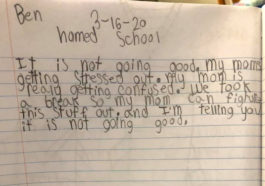 Ben
3-16-20
homed School
It is not going good. my mom's
getting stressed out. My mom is
really getting confused. We took
a break so my mom can fighure
this stuff out. and I'm telling you
it is not going good.